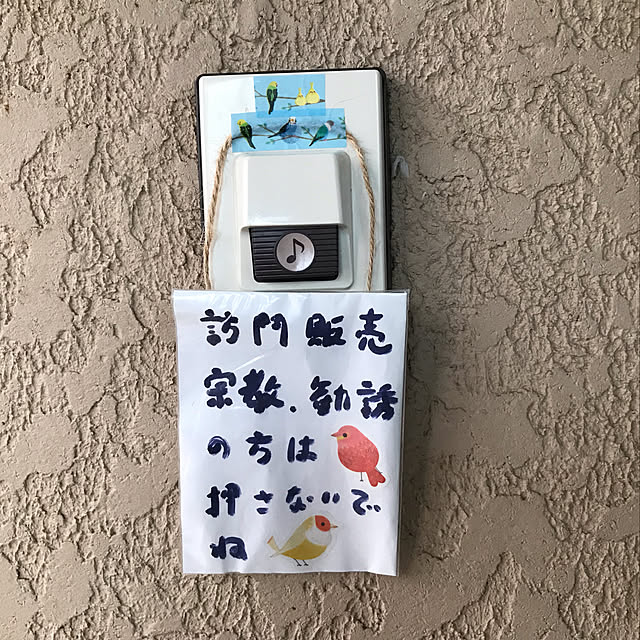 訪門販売
宗教、勧誘
の方は
押さないで
ね